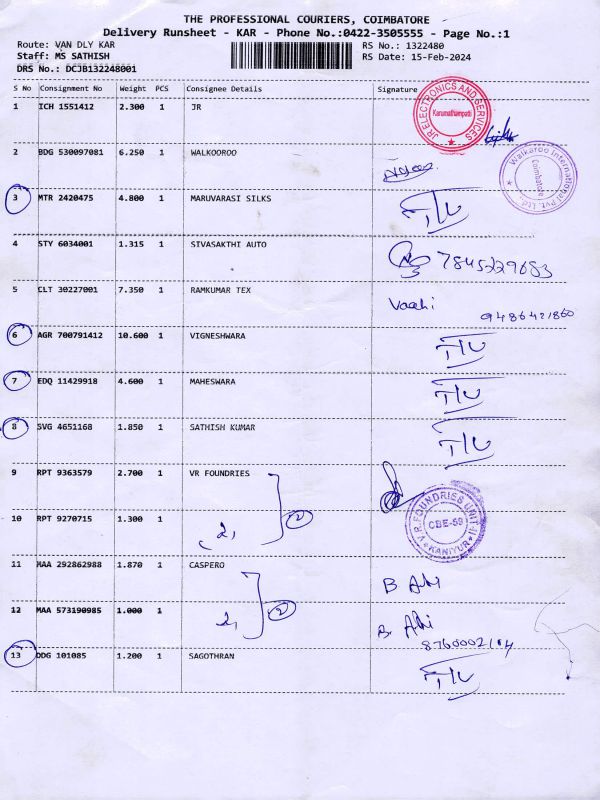 THE PROFESSIONAL COURIERS, COIMBATORE
Delivery Runsheet - KAR - Phone No.:0422-3505555 - Page No.:1
Route: VAN DLY KAR RS No.: 1322480
Staff: MS SATHISH RS Date: 15-Feb-2024
DRS No.: DCJB132248001
S No Consignment No Weight PCS Consignee Details Signature
1 ICH 1551412 2.300 1 JR
JR ELECTRONICS AND SERVICES Karumathampatti
2 BDG 530097081 6.250 1 WALKOROO
Walkaroo International Pvt. Ltd., Coimbatore
3 MTR 2420475 4.800 1 MARUVARASI SILKS
4 STY 6034001 1.315 1 SIVASAKTHI AUTO
7845229683
5 CLT 30227001 7.350 1 RAMKUMAR TEX
9486421860
6 AGR 700791412 10.600 1 VIGNESHWARA
7 EDQ 11429918 4.600 1 MAHESWARA
8 SVG 4651168 1.850 1 SATHISH KUMAR
9 RPT 9363579 2.700 1 VR FOUNDRIES
10 RPT 9270715 1.300 1
2, 2
V.R. FOUNDRIES UNIT-II CBE-59 KANIYUR
11 MAA 292862988 1.870 1 CASPERO
12 MAA 573190985 1.000 1
2, 2
13 DDG 101085 1.200 1 SAGOTHRAN